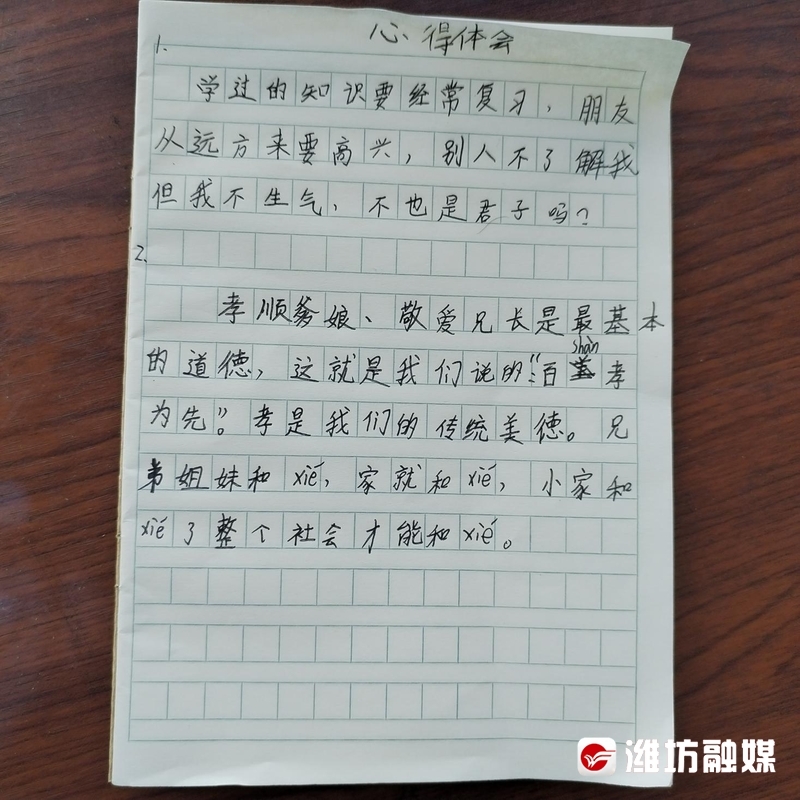 心得体会
1.
学过的知识要经常复习，朋友
从远方来要高兴，别人不了解我
但我不生气，不也是君子吗？
2.
孝顺爹娘、敬爱兄长是最基本
shàn
的道德，这就是我们说的“百善孝
为先”。孝是我们的传统美德。兄
弟姐妹和xié，家就和xié，小家和
xié了整个社会才能和xié。
潍坊融媒